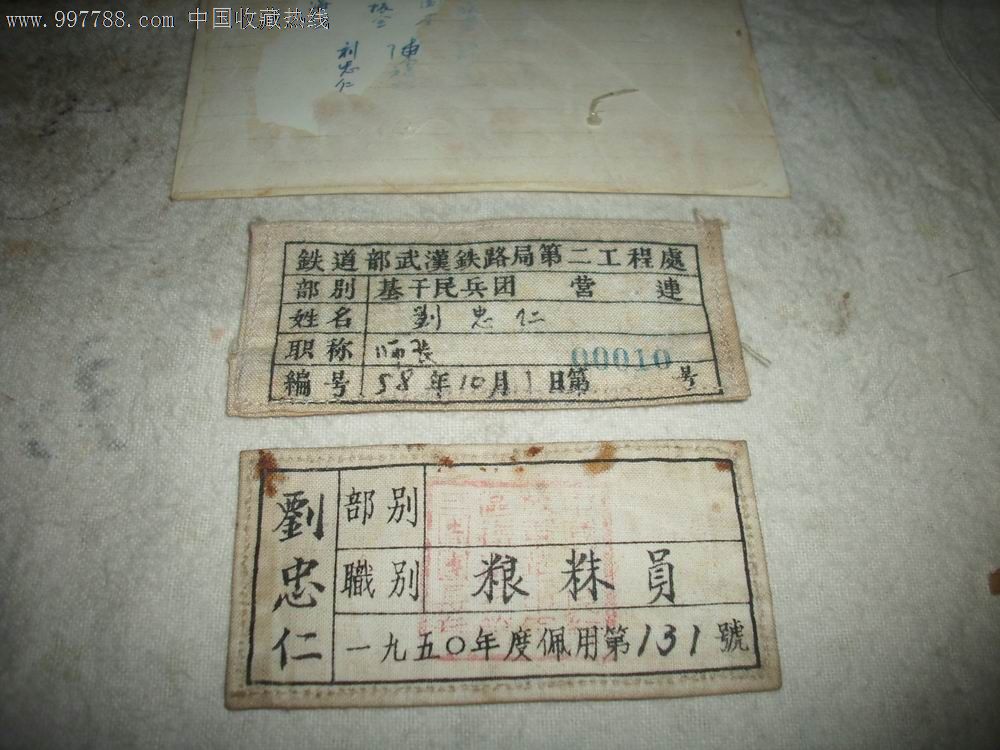 www.997788.com 中国收藏热线
利忠仁
鉄道部武漢鉄路局第二工程處
部別 基干民兵团 营 連
姓名 劉忠仁
职称 师长
00010
編号 58年10月1日第 号
劉忠仁
部别
職别 粮秣員
一九五〇年度佩用第131號